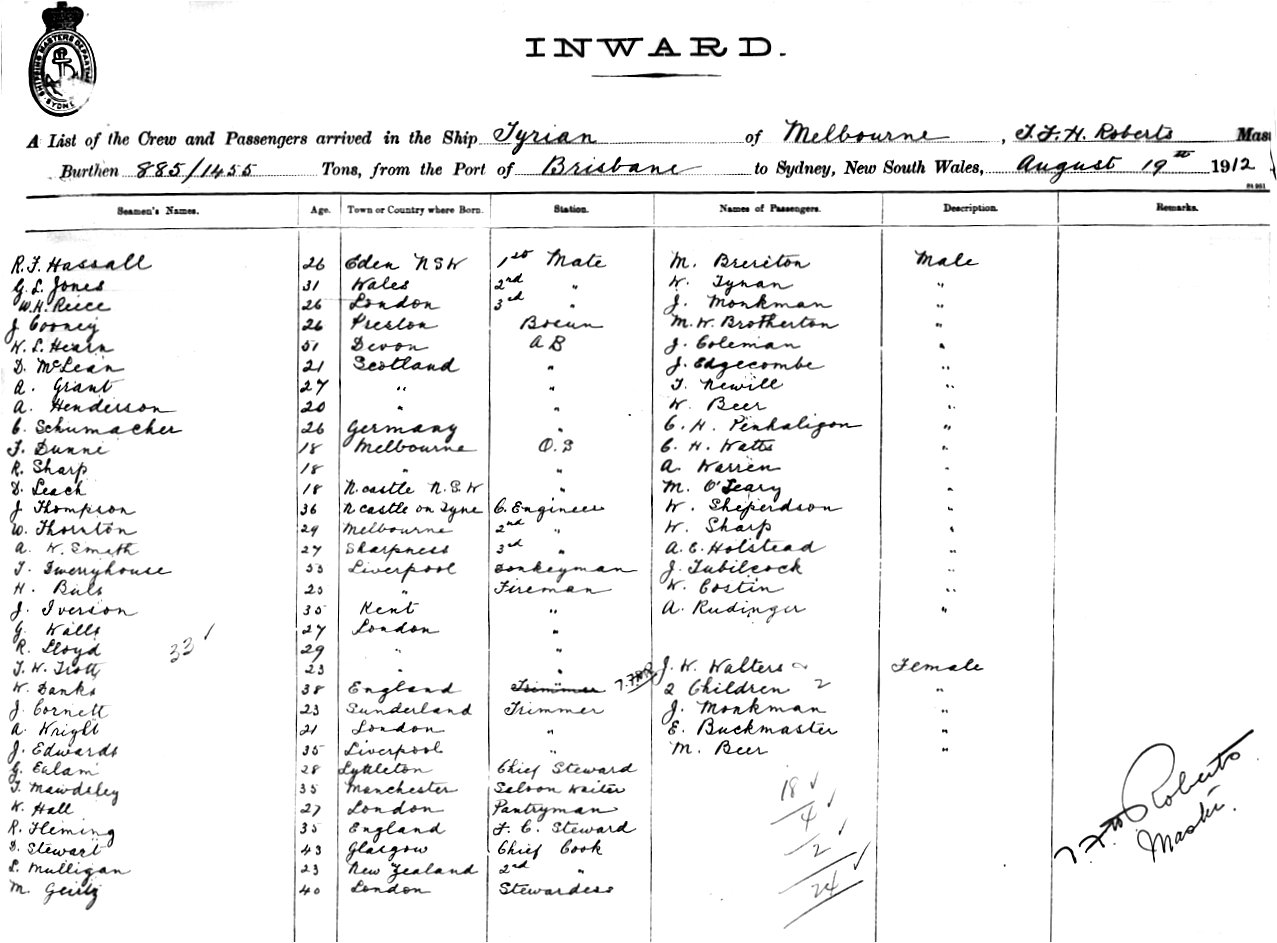 SHIPPING MASTERS DEPARTMENT SYDNEY
INWARD.
A List of the Crew and Passengers arrived in the Ship Tyrian of Melbourne, T.F.H. Roberts Mas
Burthen 885/1455 Tons, from the Port of Brisbane to Sydney, New South Wales, August 19th 1912
Seamen's Names. Age. Town or Country where Born. Station. Names of Passengers. Description. Remarks.
R. F. Hassall 26 Eden NSW 1st Mate M. Breriton Male
G. L. Jones 31 Wales 2nd " W. Tynan "
W. H. Reece 26 London 3rd " J. Monkman "
J Cooney 26 Preston Bosun M. W. Brotherton "
W. L. Hearn 51 Devon A B J. Coleman "
D. McLean 21 Scotland " J. Edgecombe "
A. Grant 27 " " T. Newill "
A. Henderson 20 " " W. Beer "
C. Schumacher 26 Germany " C. H. Penhaligon "
T. Dunne 18 Melbourne O.S C. H. Watts "
R. Sharp 18 " " A. Warren "
D. Leach 18 N.castle N.S.W " M. O'Leary "
J Thompson 36 N castle on Tyne C. Engineer W. Sheperdson "
W. Thornton 29 Melbourne 2nd " W. Sharp "
A. W. Smith 27 Sharpness 3rd " A. E. Holstead "
T. Twerryhouse 53 Liverpool Donkeyman J. Tubilcock "
H. Bials 25 " Fireman W. Costin "
J. Iverson 35 Kent " A. Rudinger "
G. Walls 27 London "
R. Lloyd 33 ✓ 29 " "
T. W. Trott 23 " " J. W. Walters Female
W. Danks 38 England Trimmer 2 Children 2 "
J. Cornett 23 Sunderland Trimmer J. Monkman "
A. Wright 21 London " E. Buckmaster "
J. Edwards 35 Liverpool " M. Beer "
G. Ealam 28 Lyttleton Chief Steward
T. Mawdsley 35 Manchester Saloon Waiter 18 ✓
W. Hall 27 London Pantryman 4 ✓
R. Fleming 35 England F. C. Steward
D. Stewart 43 Glasgow Chief Cook 2 ✓
L. Mulligan 23 New Zealand 2nd "
M. Geirtz 40 London Stewardess 24 ✓
Roberts
Master.